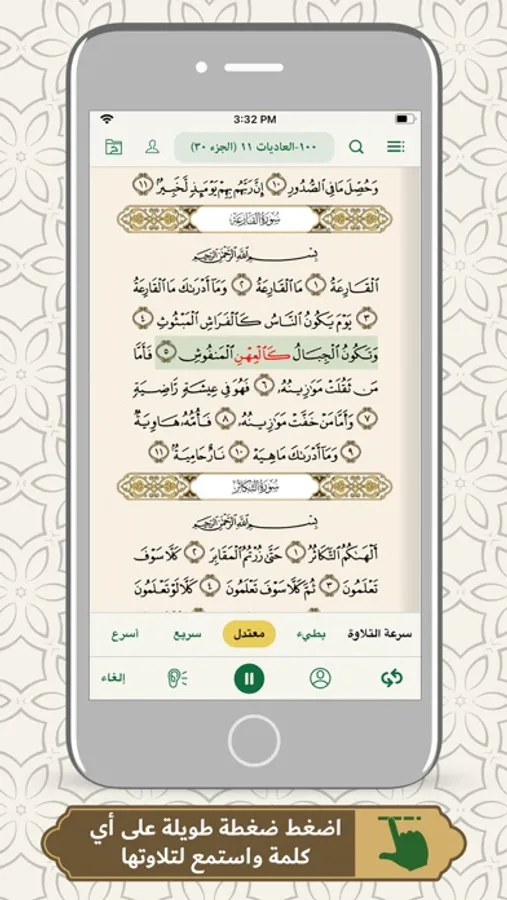 3:32 PM
١٠٠-العاديات ١١ (الجزء ٣٠)
وَحُصِّلَ مَا فِي الصُّدُورِ ١٠ إِنَّ رَبَّهُم بِهِمْ يَوْمَئِذٍ لَّخَبِيرٌ ١١
سُورَةُ القَارِعَة
بِسْمِ اللَّهِ الرَّحْمَٰنِ الرَّحِيمِ
الْقَارِعَةُ ١ مَا الْقَارِعَةُ ٢ وَمَا أَدْرَىٰكَ مَا الْقَارِعَةُ
٣ يَوْمَ يَكُونُ النَّاسُ كَالْفَرَاشِ الْمَبْثُوثِ ٤
وَتَكُونُ الْجِبَالُ كَالْعِهْنِ الْمَنفُوشِ ٥ فَأَمَّا
مَن ثَقُلَتْ مَوَٰزِينُهُۥ ٦ فَهُوَ فِي عِيشَةٍ رَّاضِيَةٍ
٧ وَأَمَّا مَنْ خَفَّتْ مَوَٰزِينُهُۥ ٨ فَأُمُّهُۥ هَاوِيَةٌ
٩ وَمَا أَدْرَىٰكَ مَا هِيَهْ ١٠ نَارٌ حَامِيَةٌ ١١
سُورَةُ التَّكَاثُر
بِسْمِ اللَّهِ الرَّحْمَٰنِ الرَّحِيمِ
أَلْهَىٰكُمُ التَّكَاثُرُ ١ حَتَّىٰ زُرْتُمُ الْمَقَابِرَ ٢ كَلَّا سَوْفَ
تَعْلَمُونَ ٣ ثُمَّ كَلَّا سَوْفَ تَعْلَمُونَ ٤ كَلَّا لَوْ تَعْلَمُونَ
سرعة التلاوة بطيء معتدل سريع أسرع
إلغاء
اضغط ضغطة طويلة على أي
كلمة واستمع لتلاوتها